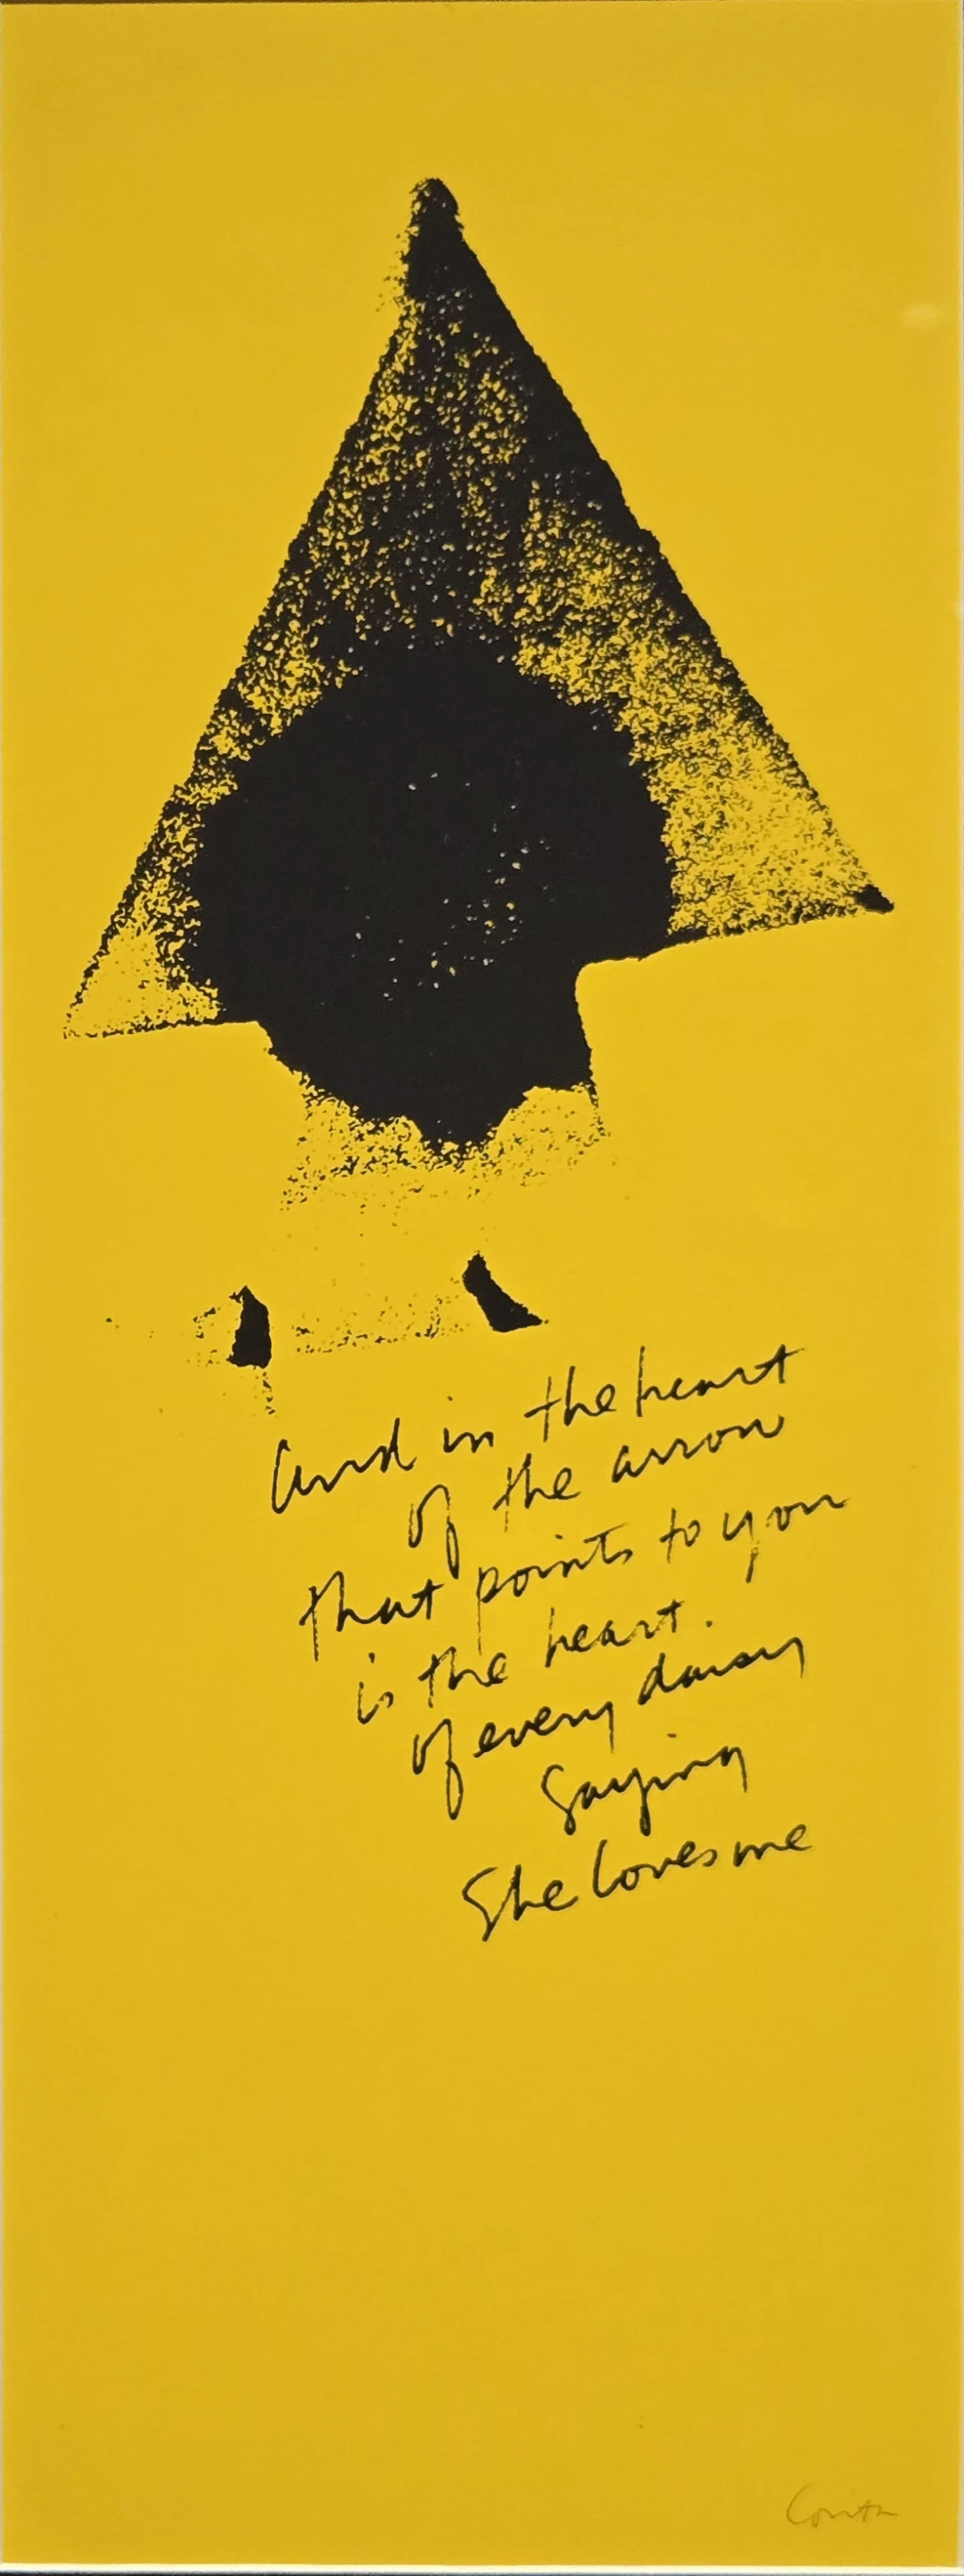 and in the heart
of the arrow
that points to you
is the heart.
of every daisy
saying
She loves me
Corita